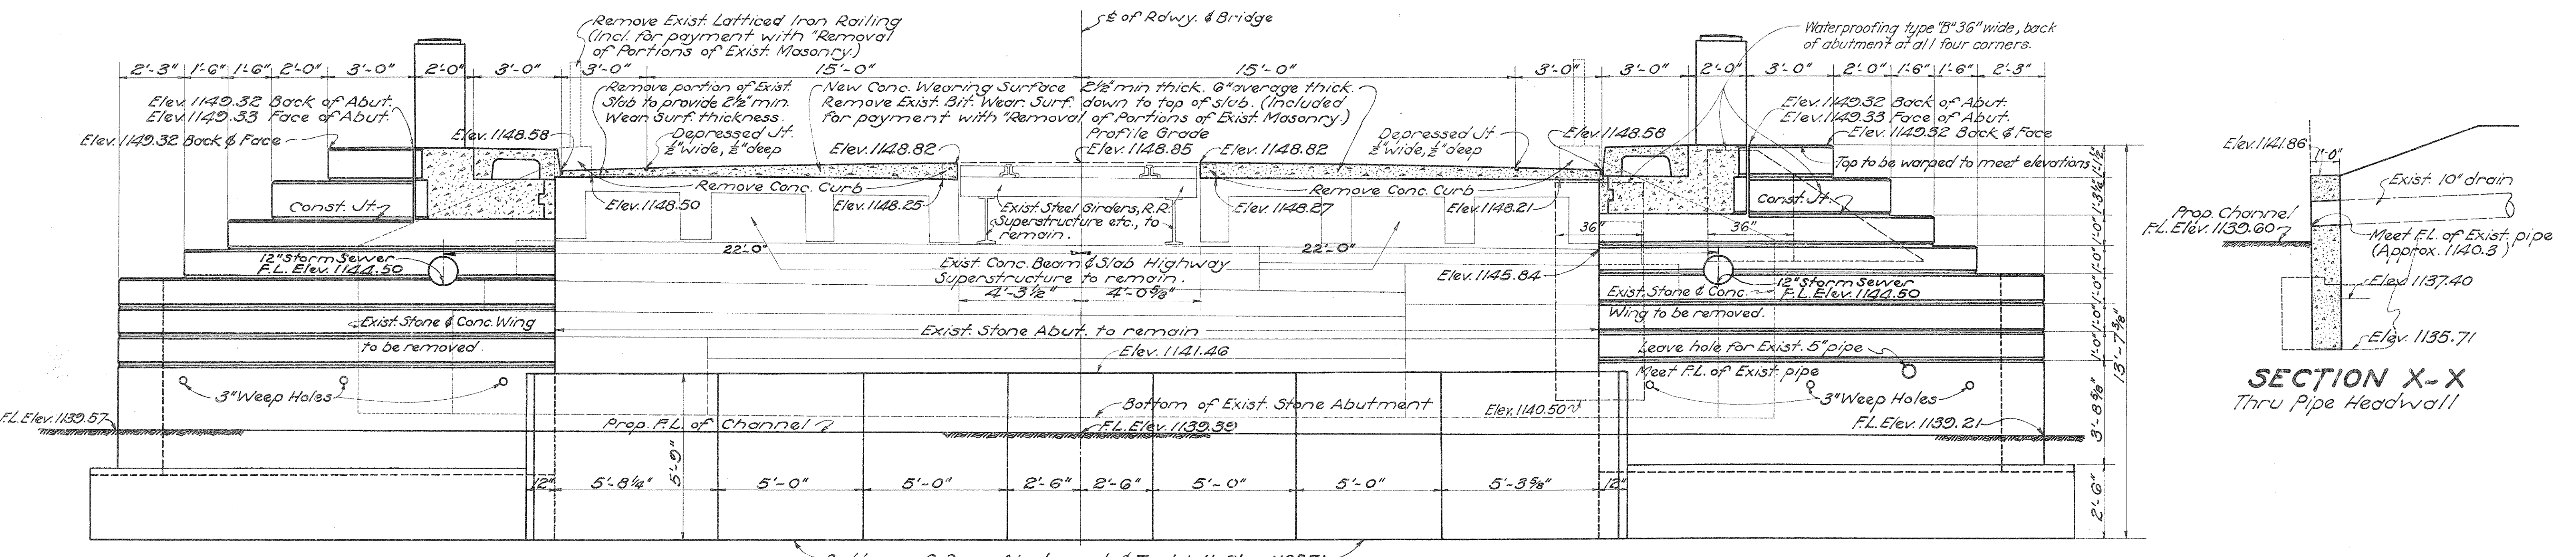 Remove Exist. Latticed Iron Railing
(Incl. for payment with "Removal
of Portions of Exist. Masonry.)
℄ of Rdwy. & Bridge
Waterproofing type "B" 36" wide, back
of abutment at all four corners.
2'-3" 1'-6" 1'-6" 2'-0" 3'-0" 2'-0" 3'-0" 3'-0" 15'-0" 15'-0" 3'-0" 3'-0" 2'-0" 3'-0" 2'-0" 1'-6" 1'-6" 2'-3"
Elev. 1149.32 Back of Abut.
Elev. 1149.33 Face of Abut.
Elev. 1149.32 Back & Face
Elev. 1148.58
Remove portion of Exist.
Slab to provide 2½" min.
Wear. Surf. thickness.
Depressed Jt.
½" wide, ½" deep
New Conc. Wearing Surface 2½" min thick. 6" average thick.
Remove Exist. Bit. Wear. Surf. down to top of slab. (Included
for payment with "Removal of Portions of Exist. Masonry.)
Profile Grade
Elev. 1148.85
Elev. 1148.82
Elev. 1148.82
Depressed Jt.
½" wide, ½" deep
Elev. 1148.58
Elev. 1149.32 Back of Abut.
Elev. 1149.33 Face of Abut.
Elev. 1149.32 Back & Face
Top to be warped to meet elevations
Remove Conc. Curb
Remove Conc. Curb
Const. Jt.
Elev. 1148.50
Elev. 1148.25
Exist. Steel Girders, R.R.
Superstructure etc., to
remain.
Elev. 1148.27
Elev. 1148.21
Const. Jt.
36"
36"
22'-0"
22'-0"
12" Storm Sewer
F.L. Elev. 1144.50
Exist. Conc. Beam & Slab Highway
Superstructure to remain.
4'-3½" 4'-0⅝"
Elev. 1145.84
12" Storm Sewer
F.L. Elev. 1144.50
Exist. Stone & Conc.
Wing to be removed.
Exist. Stone & Conc. Wing
to be removed.
Exist. Stone Abut. to remain
Elev. 1141.46
Leave hole for Exist. 5" pipe
Meet F.L. of Exist. pipe
3" Weep Holes
Bottom of Exist. Stone Abutment
Elev. 1140.50
3" Weep Holes
F.L. Elev. 1139.57
Prop. F.L. of Channel
F.L. Elev. 1139.39
F.L. Elev. 1139.21
5'-9"
12" 5'-8¼" 5'-0" 5'-0" 2'-6" 2'-6" 5'-0" 5'-0" 5'-3⅝" 12"
1'-1½"
1'-3¼"
1'-0"
1'-0"
1'-0"
1'-0"
1'-0"
3'-8⅝"
2'-6"
13'-7⅜"
Elev. 1141.86
1'-0"
Exist. 10" drain
Prop. Channel
F.L. Elev. 1139.60
Meet F.L. of Exist. pipe
(Approx. 1140.3)
Elev. 1137.40
Elev. 1135.71
SECTION X-X
Thru Pipe Headwall